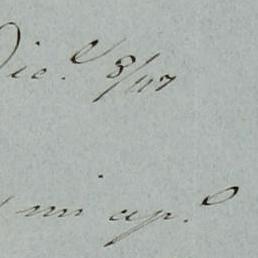 Dic.e 8/47
mi ap.o